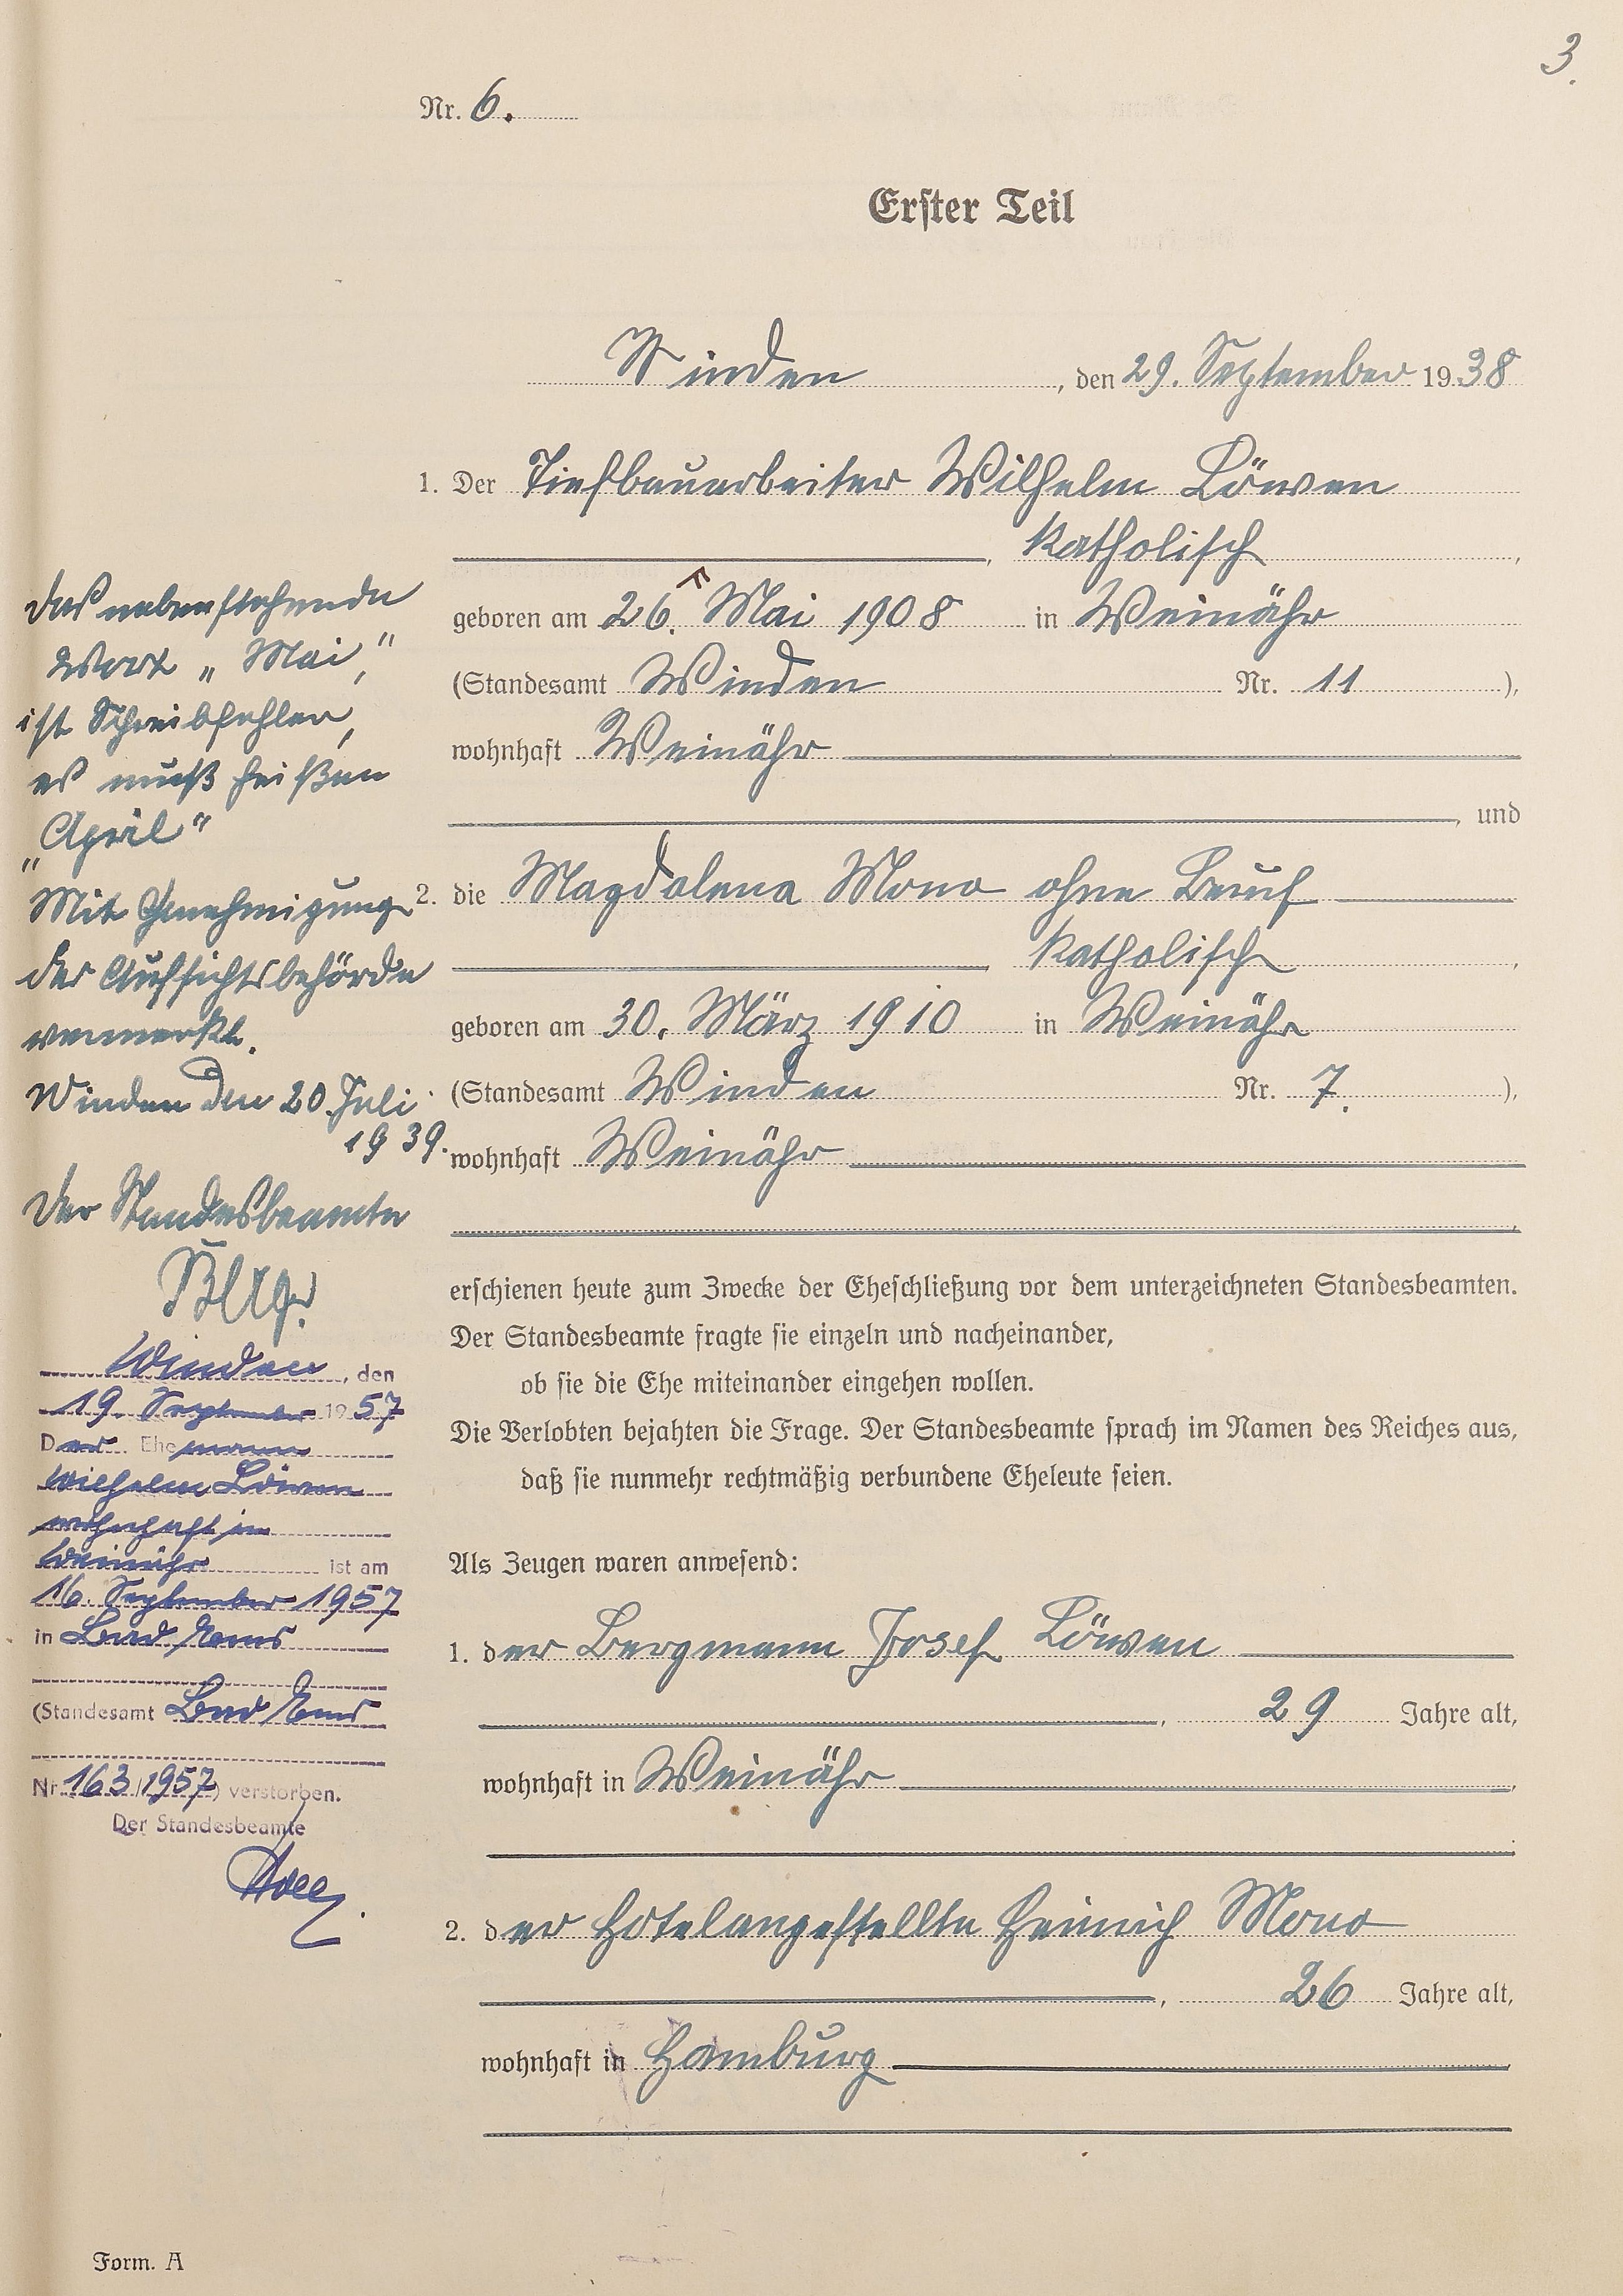 3.
Nr. 6.
Erster Teil
Winden, den 29. September 1938
1. Der Tiefbauarbeiter Wilhelm Löwen
, katholisch,
geboren am 26. Mai 1908 in Weinähr
(Standesamt Winden Nr. 11),
wohnhaft Weinähr
, und
2. die Magdalena Mono ohne Beruf
, katholisch,
geboren am 30. März 1910 in Weinähr
(Standesamt Winden Nr. 7.),
wohnhaft Weinähr
erschienen heute zum Zwecke der Eheschließung vor dem unterzeichneten Standesbeamten.
Der Standesbeamte fragte sie einzeln und nacheinander,
ob sie die Ehe miteinander eingehen wollen.
Die Verlobten bejahten die Frage. Der Standesbeamte sprach im Namen des Reiches aus,
daß sie nunmehr rechtmäßig verbundene Eheleute seien.
Als Zeugen waren anwesend:
1. der Bergmann Josef Löwen
, 29 Jahre alt,
wohnhaft in Weinähr,
2. der Hotelangestellte Heinrich Mono
, 26 Jahre alt,
wohnhaft in Hamburg
Das nebenstehende
Wort „Mai,"
ist Schreibfehler,
es muß heißen
„April"
Mit Genehmigung
der Aufsichtsbehörde
vermerkt.
Winden den 20. Juli
1939.
Der Standesbeamte
Winden, den
19. September 1957
Der Ehemann
Wilhelm Löwen
wohnhaft in
Weinähr ist am
16. September 1957
in Bad Ems
(Standesamt Bad Ems
Nr. 163/1957) verstorben.
Der Standesbeamte
Form. A